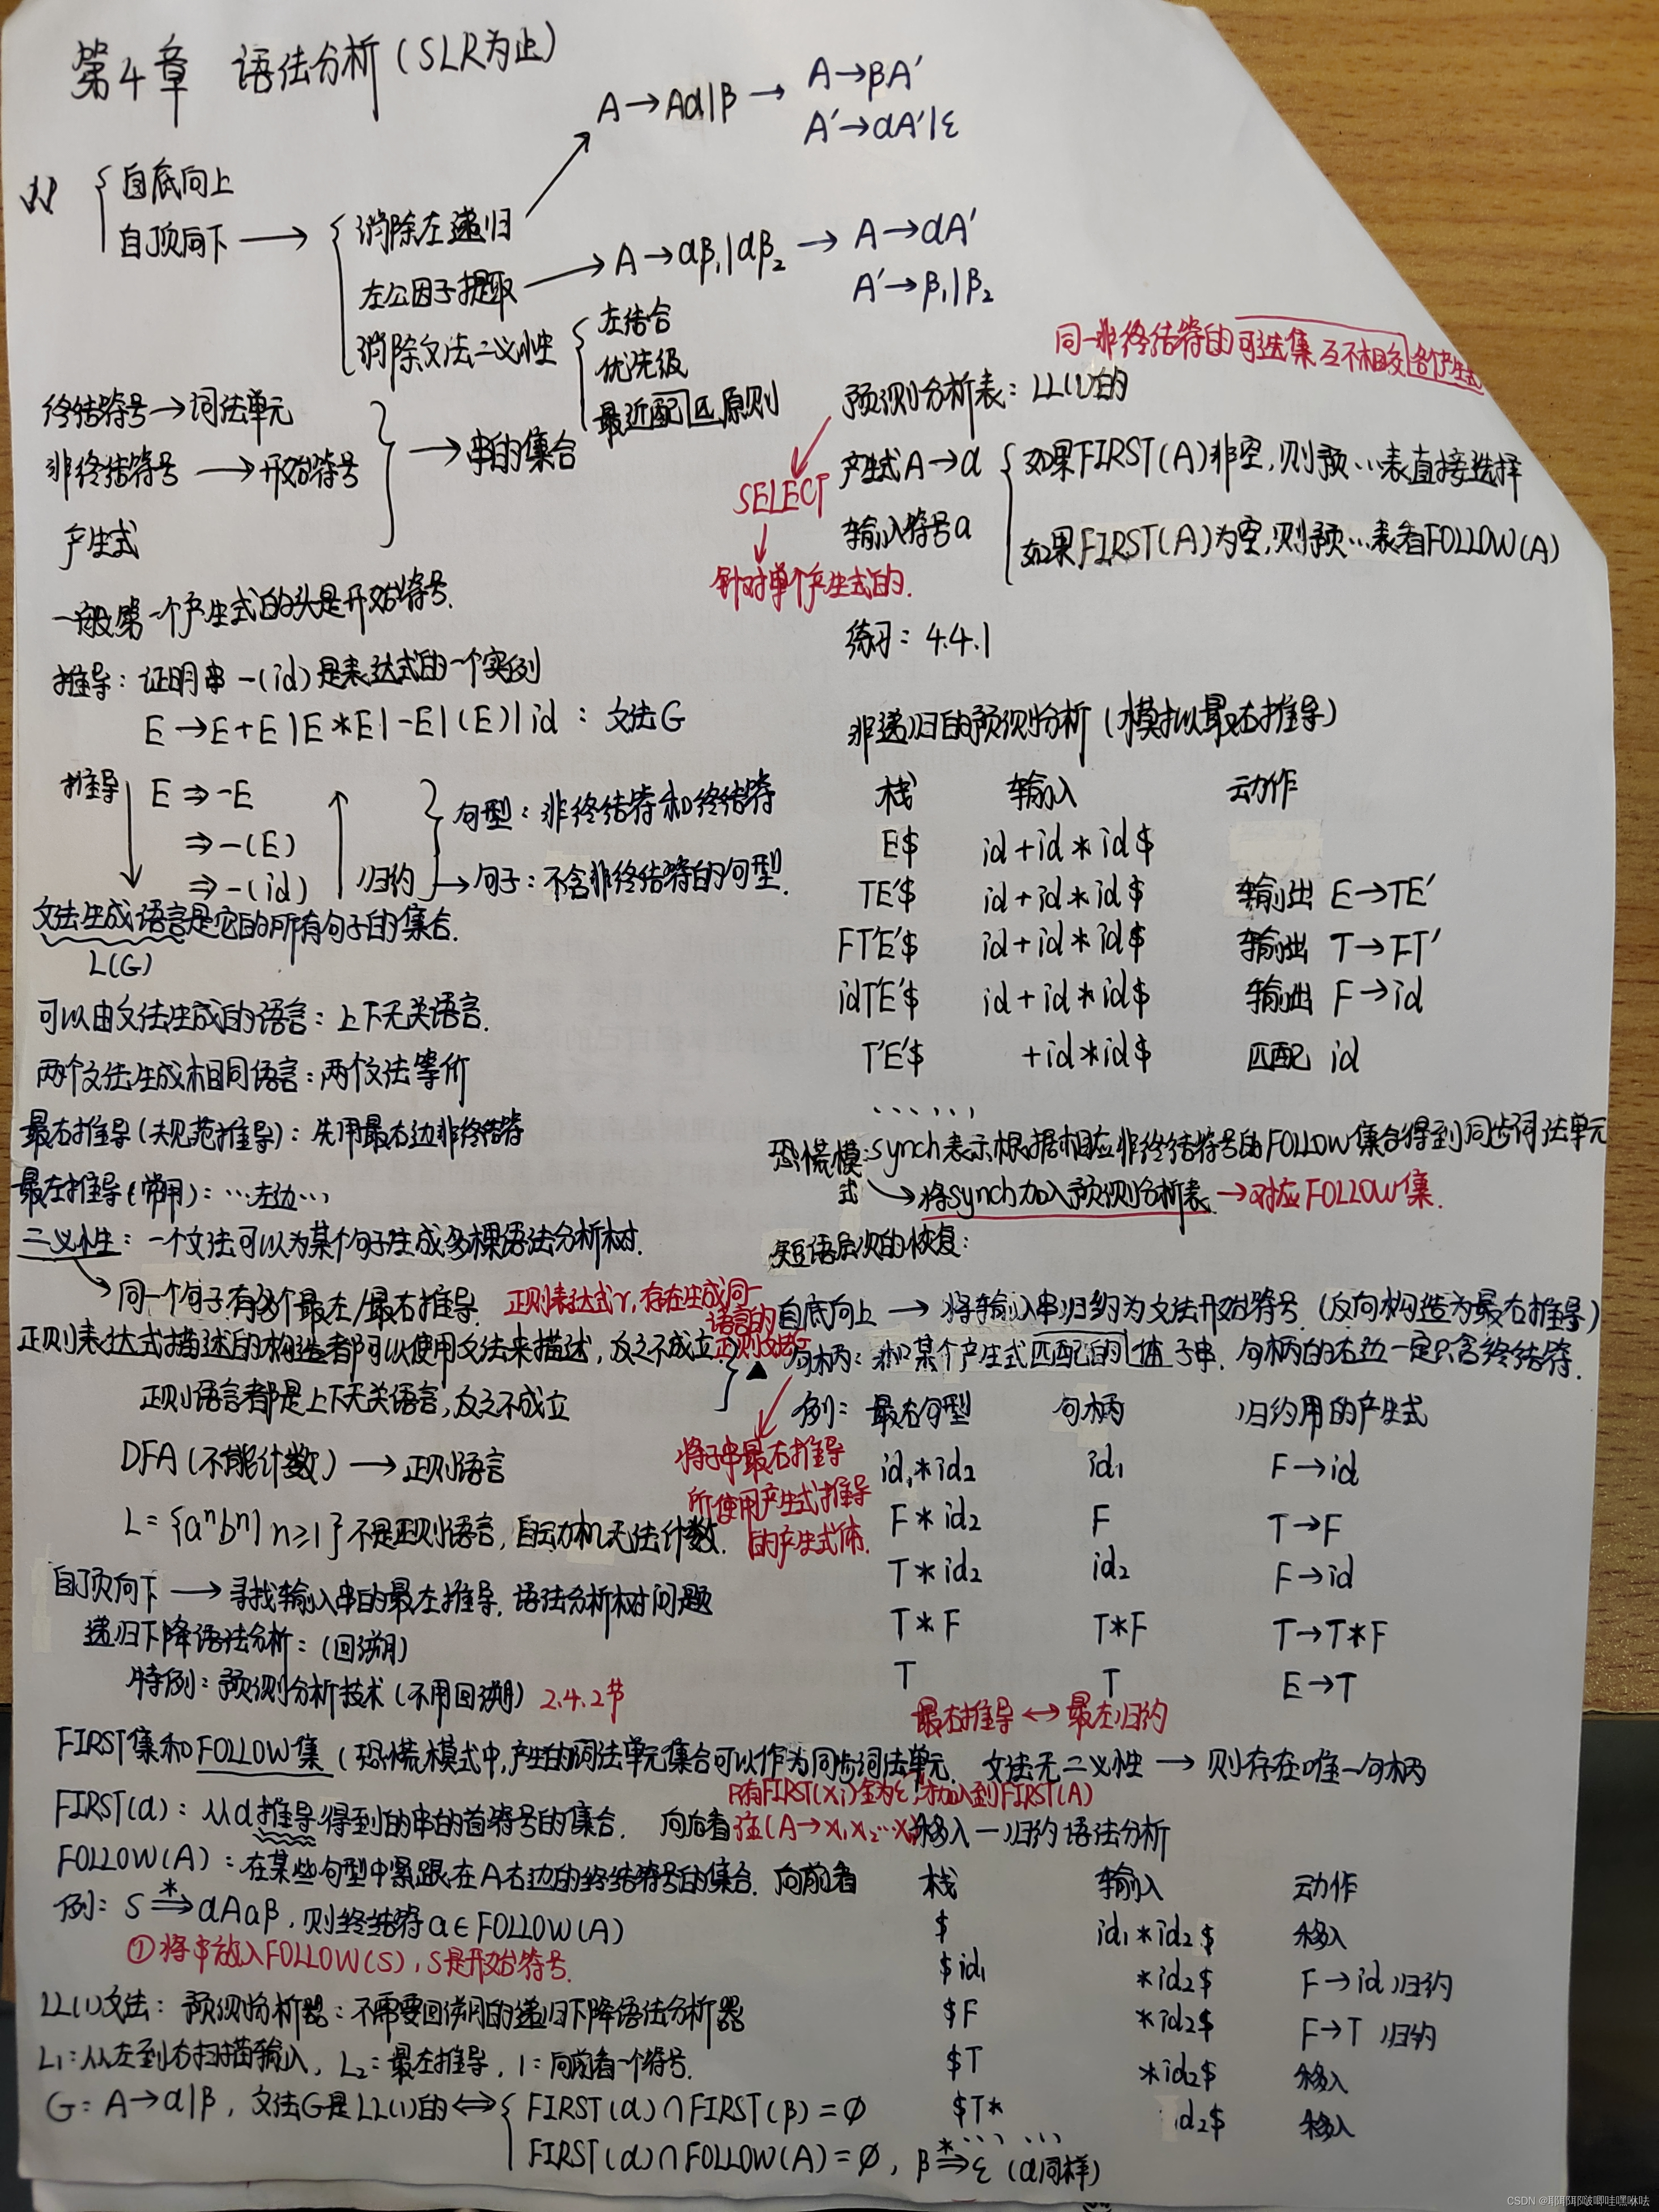 第4章 语法分析(SLR为止)
A→Aα|β → A→βA'
A'→αA'|ε
自底向上
自顶向下 → 消除左递归
左公因子提取 → A→αβ₁|αβ₂ → A→αA'
A'→β₁|β₂
消除文法二义性
左结合
优先级
最近匹配原则
终结符号→词法单元
非终结符号→开始符号
产生式
→串的集合
一般第一个产生式的头是开始符号.
推导:证明串-(id)是表达式的一个实例
E→E+E|E*E|-E|(E)|id : 文法G
推导 E⇒-E
⇒-(E)
⇒-(id) 归约
句型:非终结符和终结符
→句子:不含非终结符的句型.
文法生成语言是它的所有句子的集合.
L(G)
可以由文法生成的语言:上下无关语言.
两个文法生成相同语言:两个文法等价
最右推导(规范推导):先用最右边非终结符
最左推导(常用):…左边…
二义性:一个文法可以为某个句子生成多棵语法分析树.
→同一个句子有多个最左/最右推导.
正则表达式r,存在生成同一
语言的
正则文法G
正则表达式描述的构造都可以使用文法来描述,反之不成立.
正则语言都是上下无关语言,反之不成立
DFA(不能计数)→正则语言
L={aⁿbⁿ|n≥1}不是正则语言,自动机无法计数.
自顶向下→寻找输入串的最左推导.语法分析树问题
递归下降语法分析:(回溯)
特例:预测分析技术(不用回溯) 2.4.2节
FIRST集和FOLLOW集(恐慌模式中,产生的词法单元集合可以作为同步词法单元.
FIRST(α):从α推导得到的串的首符号的集合. 向后看
所有FIRST(Xi)全为ε,才加入到FIRST(A)
注(A→X₁X₂…
FOLLOW(A):在某些句型中紧跟在A右边的终结符号的集合. 向前看
例:S⇒*αAaβ,则终结符a∈FOLLOW(A)
①将$放入FOLLOW(S),S是开始符号.
LL(1)文法:预测分析器:不需要回溯的递归下降语法分析器
L₁:从左到右扫描输入,L₂:最左推导,1:向前看一个符号.
G:A→α|β,文法G是LL(1)的⇔ FIRST(α)∩FIRST(β)=∅
FIRST(α)∩FOLLOW(A)=∅,β⇒*ε(α同样)
同一非终结符的可选集互不相交 各产生式
预测分析表:LL(1)的
SELECT
针对单个产生式的.
产生式A→α 如果FIRST(A)非空,则预…表直接选择
输入符号a 如果FIRST(A)为空,则预…表看FOLLOW(A)
练习:4.4.1
非递归的预测分析(模拟最右推导)
栈 输入 动作
E$ id+id*id$
TE'$ id+id*id$ 输出 E→TE'
FT'E'$ id+id*id$ 输出 T→FT'
idT'E'$ id+id*id$ 输出 F→id
T'E'$ +id*id$ 匹配 id
……
恐慌模式:synch表示根据相应非终结符号的FOLLOW集合得到同步词法单元
→将synch加入预测分析表.→对应FOLLOW集.
短语层次的恢复:
自底向上→将输入串归约为文法开始符号.(反向构造为最右推导)
▲句柄:和某个产生式匹配的体子串.句柄的右边一定只含终结符.
将子串最右推导
所使用产生式推导
的产生式体.
例:最右句型 句柄 归约用的产生式
id₁*id₂ id₁ F→id
F*id₂ F T→F
T*id₂ id₂ F→id
T*F T*F T→T*F
T T E→T
最右推导↔最左归约
文法无二义性→则存在唯一句柄
移入—归约语法分析
栈 输入 动作
$ id₁*id₂$ 移入
$id₁ *id₂$ F→id归约
$F *id₂$ F→T 归约
$T *id₂$ 移入
$T* id₂$ 移入
…… ……
CSDN @耶耶耶啵唧哇嘿咻呔